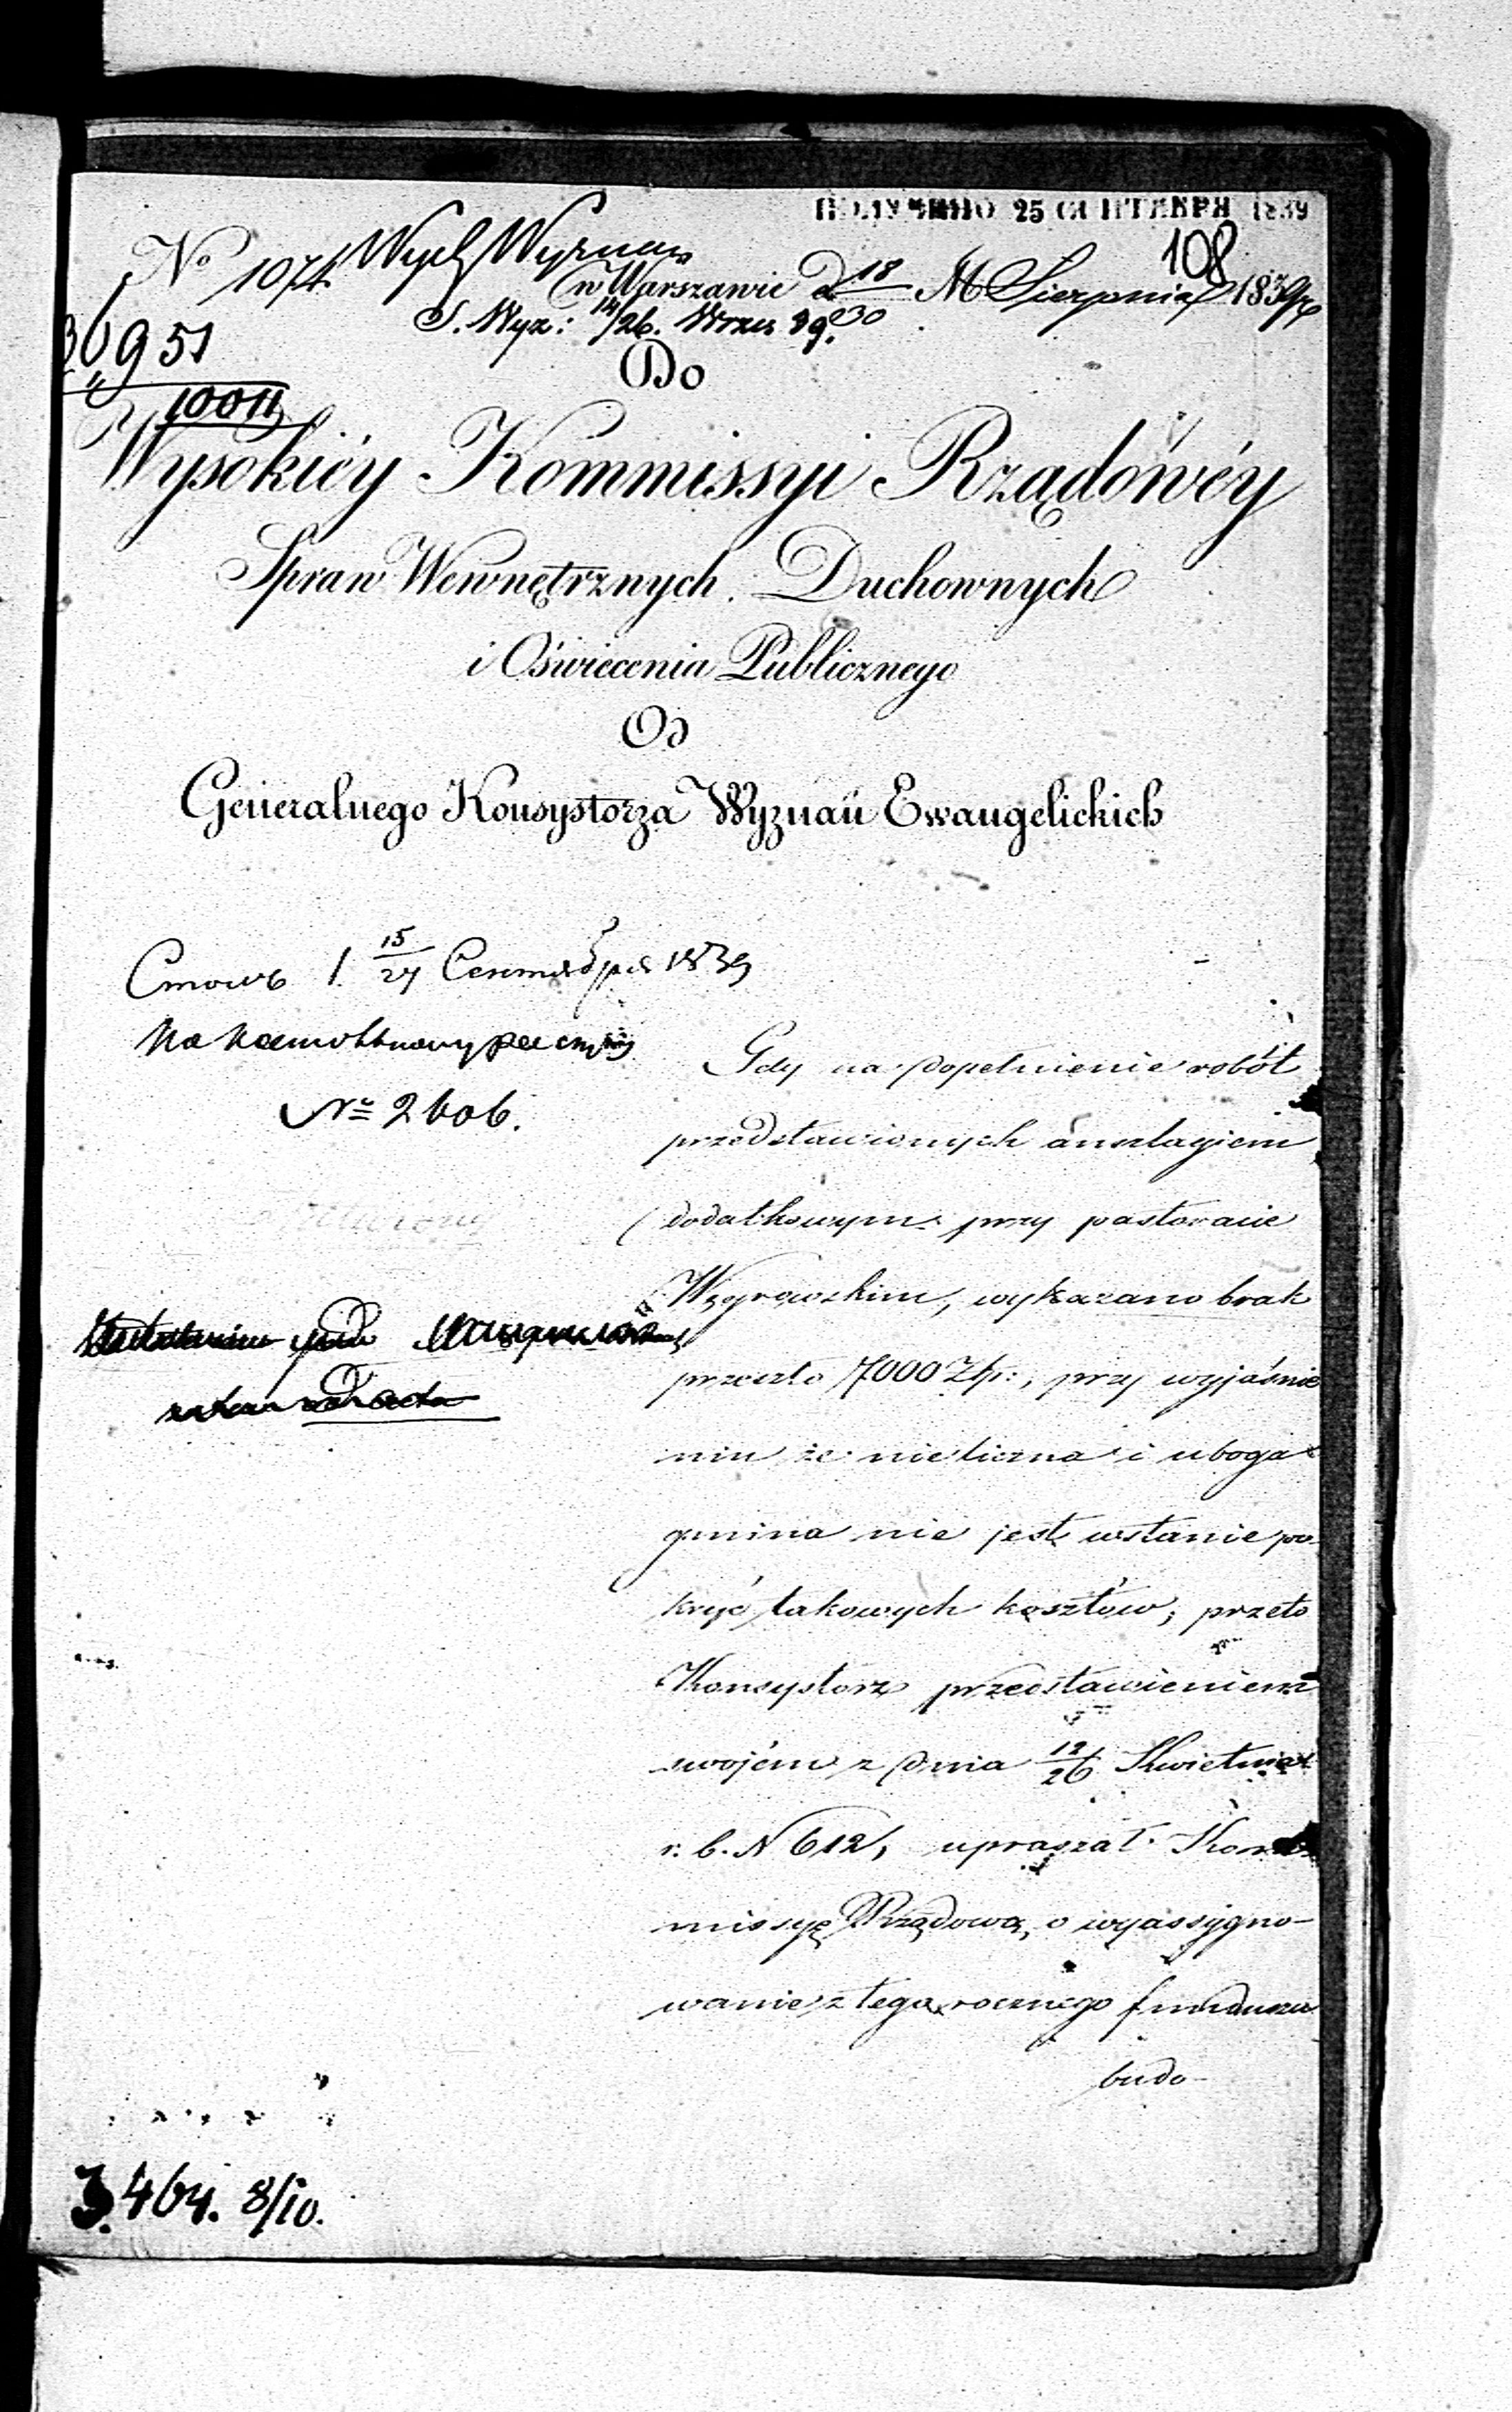 ПОЛУЧЕНО 25 СЕНТЯБРЯ 1839
108
No 1074 Wydz Wyznan
w Warszawie d 18/30 M Sierpnia 1839 r
S. Wyz: 14/26. Wrześ 39.
36951
10011
Do
Wysokiéy Kommissyi Rządówéy
Spraw Wewnętrznych Duchownych
i Oświecenia Publicznego
Od
Generalnego Konsystorza Wyznań Ewangelickich
15/27 Сентября 1839
No 2606.
Gdy na dopełnienie robót
przedstawionych anszlagiem
dodatkowym przy pastoracie
Węgrowskim, wykazano brak
przeszło 7000 Złp:, przy wyjaśnie
niu że nieliczna i uboga
gmina nie jest wstanie po-
kryć takowych kosztów; przeto
Konsystorz przedstawieniem
swojém z dnia 12/26 Kwietnia
r. b. N 612, upraszał Kom
missyę Rządową, o wyassygno-
wanie z tegorocznego funduszu
budo-
3.464. 8/10.